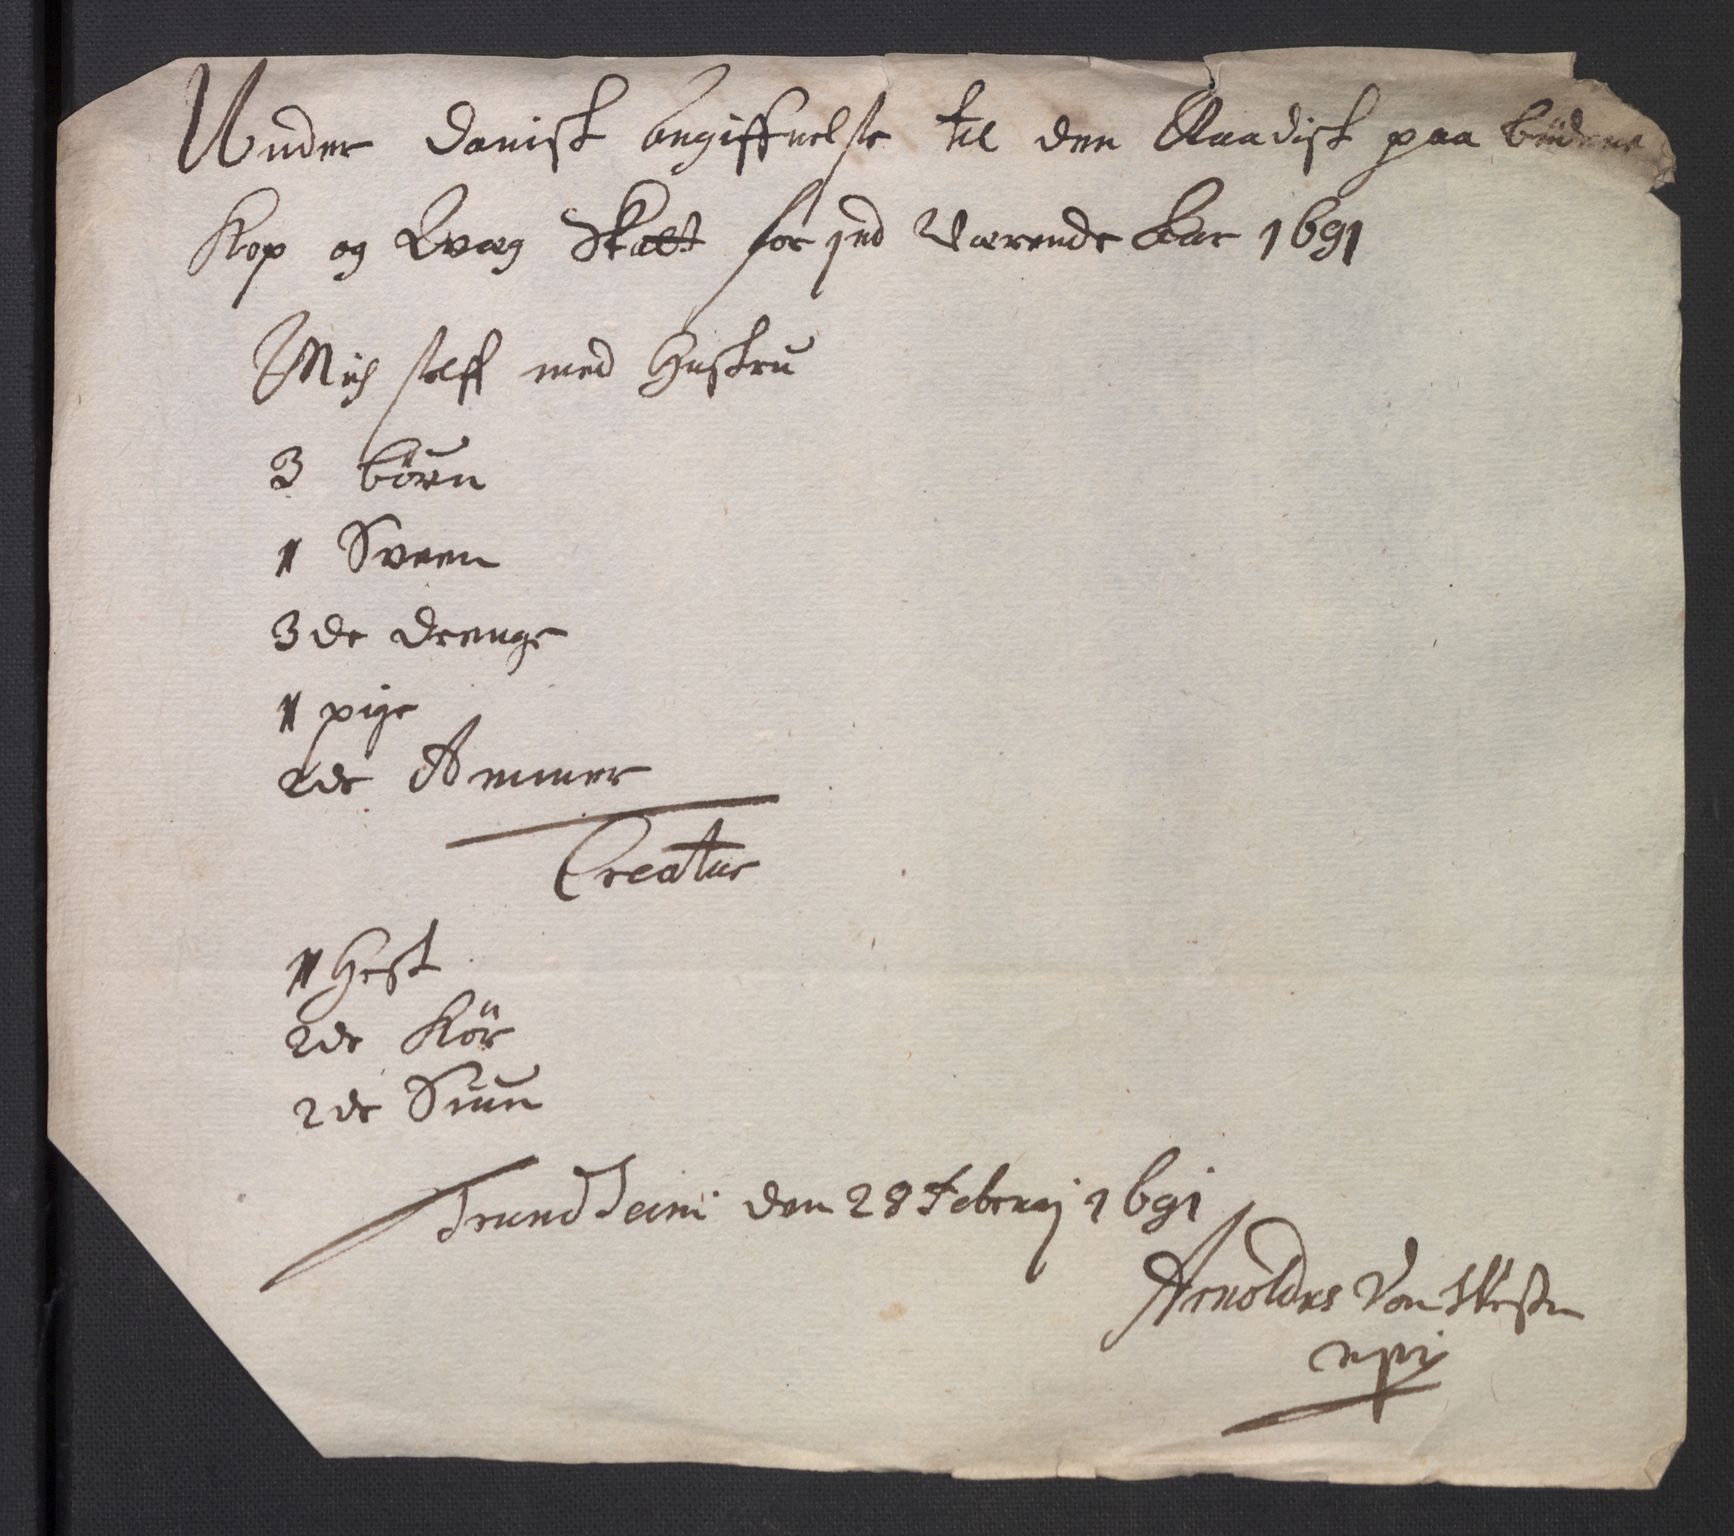 Under danisk angiffuelse til den Naadigst paa büdene
Kop og Qvæg Skatt for ind Værende Aar 1691
Mig self med Hustru
3 börn
1 Sveen
3 de drenge
1 pige
2 de Ammer
Creatur
1 Hest
2 de Kör
2 de Suin
Trundheim den 28 Februarj 1691
Arnoldus Von Westen
mpr